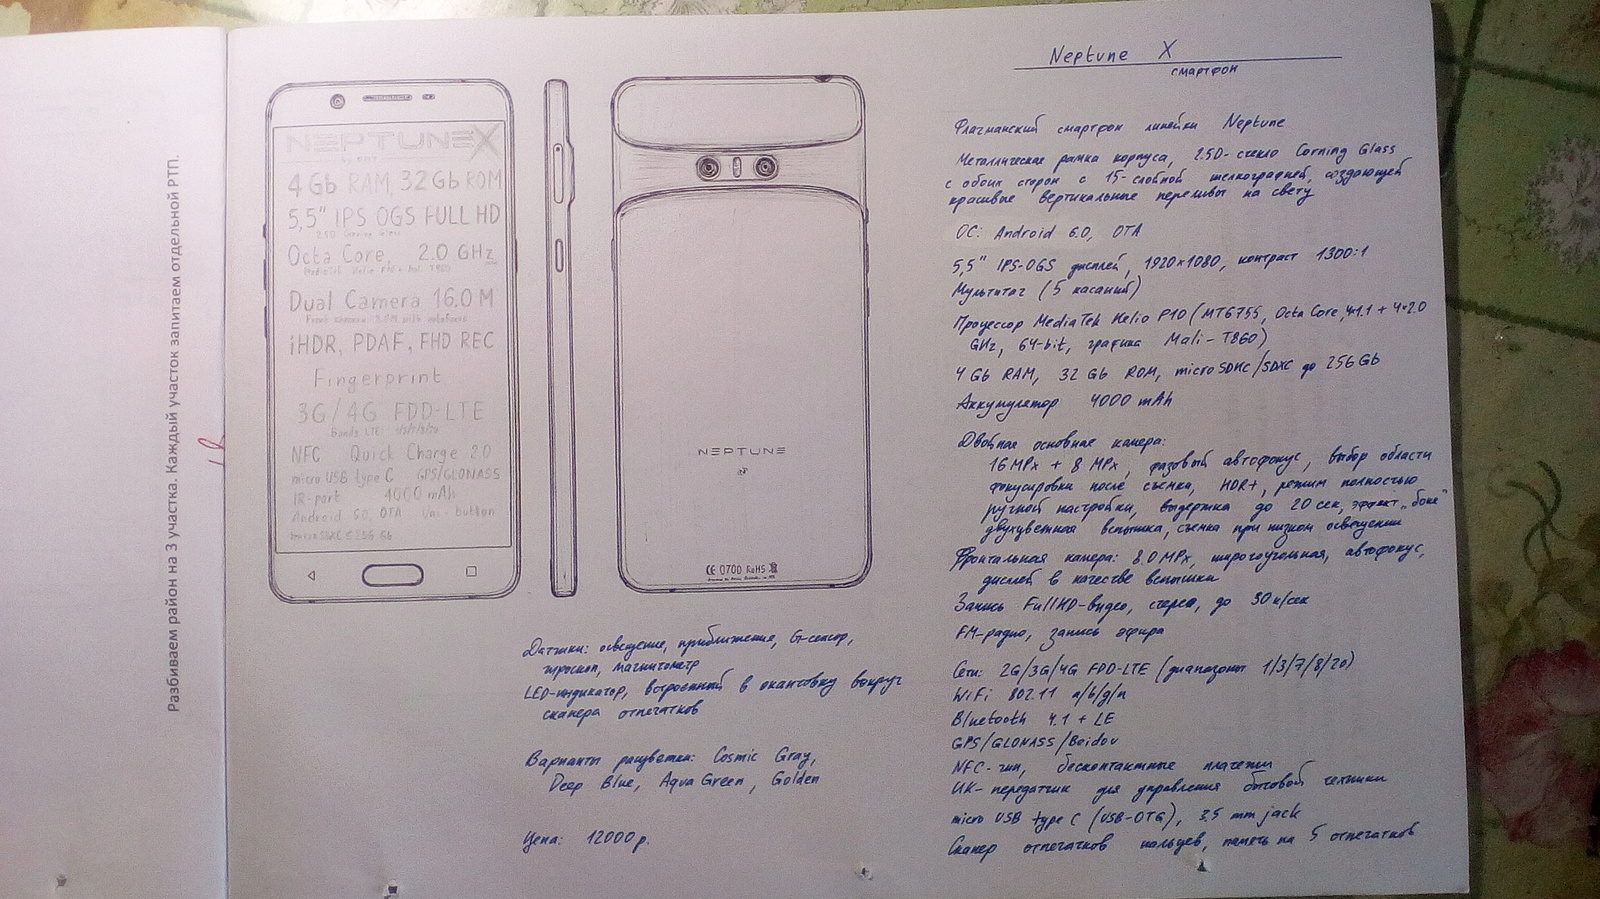 Разбиваем район на 3 участка. Каждый участок запитаем отдельной РТП.
NEPTUNE X
4 Gb RAM, 32 Gb ROM
5,5" IPS OGS FULL HD
Octa Core, 2.0 GHz
Dual Camera 16.0 M
iHDR, PDAF, FHD REC
Fingerprint
3G/4G FDD-LTE
Bands LTE: 1/3/7/8/20
NFC Quick Charge 2.0
micro USB type C GPS/GLONASS
IR-port 4000 mAh
Android 6.0, OTA Uni-button
microSDXC ≤ 256 Gb
NEPTUNE
CE 0700 RoHS
Датчики: освещение, приближение, G-сенсор,
гироскоп, магнитометр
LED-индикатор, встроенный в окантовку вокруг
сканера отпечатков
Варианты расцветки: Cosmic Gray,
Deep Blue, Aqua Green, Golden
Цена: 12000 р.
Neptune X
смартфон
Флагманский смартфон линейки Neptune
Металлическая рамка корпуса, 2.5D-стекло Corning Glass
с обоих сторон с 15-слойной шелкографией, создающей
красивые вертикальные переливы на свету
ОС: Android 6.0, OTA
5,5" IPS-OGS дисплей, 1920×1080, контраст 1300:1
Мультитач (5 касаний)
Процессор MediaTek Helio P10 (MT6755, Octa Core, 4×1.1 + 4×2.0
GHz, 64-bit, графика Mali-T860)
4 Gb RAM, 32 Gb ROM, microSDHC/SDXC до 256 Gb
Аккумулятор 4000 mAh
Двойная основная камера:
16 MPx + 8 MPx, фазовый автофокус, выбор области
фокусировки после съемки, HDR+, режим полностью
ручной настройки, выдержка до 20 сек, эффект „боке"
двухцветная вспышка, съемка при низком освещении
Фронтальная камера: 8.0 MPx, широкоугольная, автофокус,
дисплей в качестве вспышки
Запись FullHD-видео, стерео, до 30 к/сек
FM-радио, запись эфира
Сети: 2G/3G/4G FDD-LTE (диапазоны 1/3/7/8/20)
WiFi 802.11 a/b/g/n
Bluetooth 4.1 + LE
GPS/GLONASS/Beidou
NFC-чип, бесконтактные платежи
ИК-передатчик для управления бытовой техники
micro USB type C (USB-OTG), 3.5 mm jack
Сканер отпечатков пальцев, память на 5 отпечатков